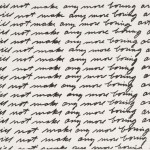 ill not make any more boring ar
ill not make any more boring ar
ill not make any more boring ar
ill not make any more boring ar
ill not make any more boring ar
ill not make any more boring ar
ill not make any more boring ar
ill not make any more boring ar
ill not make any more boring ar
ill not make any more boring ar
ill not make any more boring ar